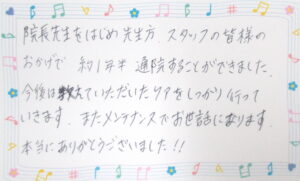 院長先生をはじめ 先生方 スタッフの皆様の
おかげで 約1年半 通院することができました。
今後は教えていただいたケアをしっかり行って
いきます。またメンテナンスでお世話になります。
本当にありがとうございました!!